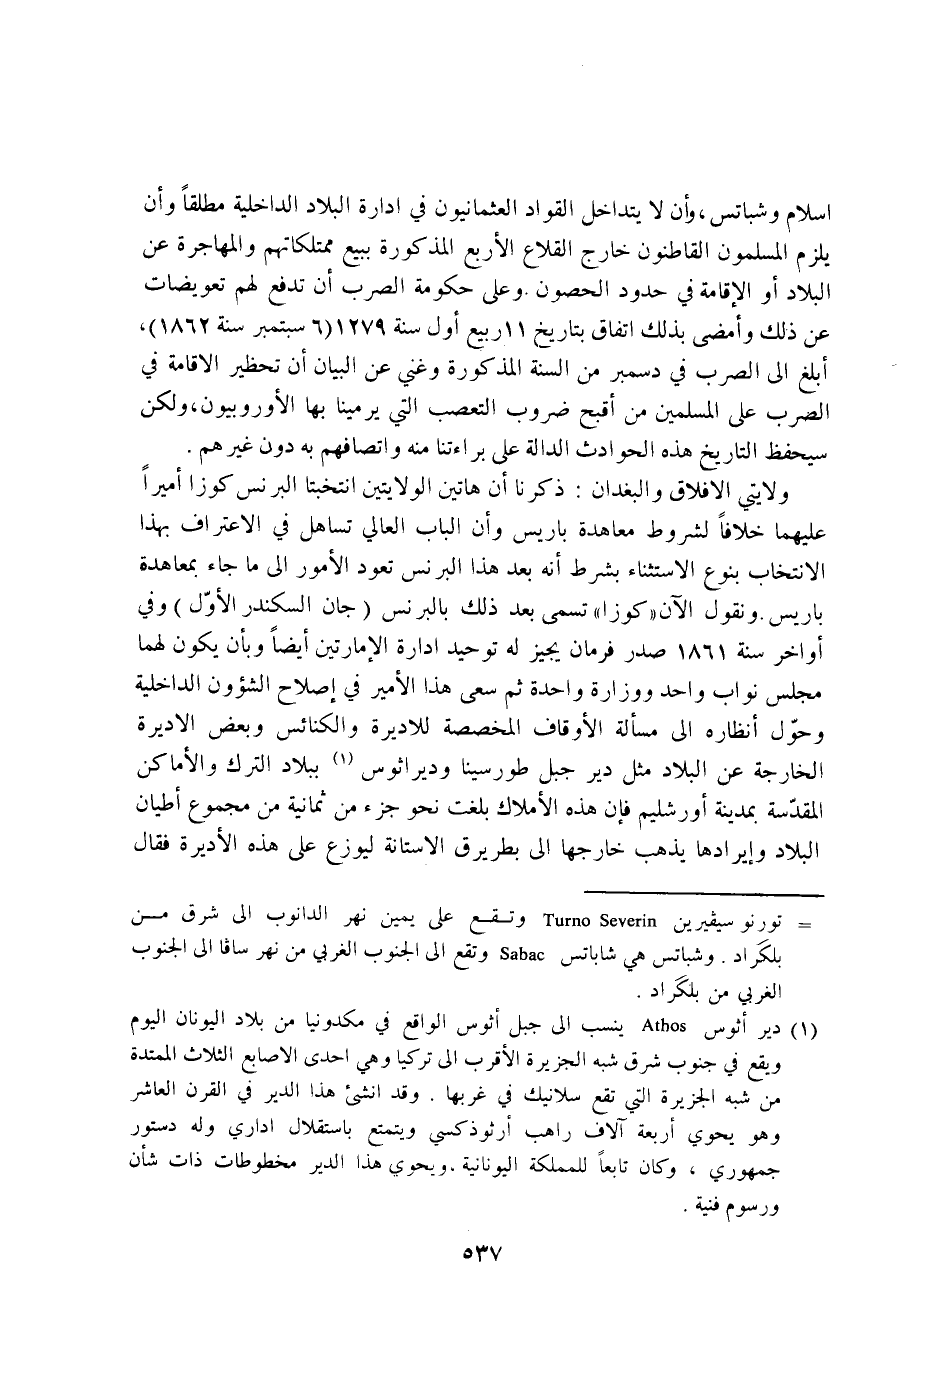 اسلام وشباتس،وأن لا يتداخل القواد العثمانيون في ادارة البلاد الداخلية مطلقاً وأن
يلزم المسلمون القاطنون خارج القلاع الأربع المذكورة ببيع ممتلكاتهم والمهاجرة عن
البلاد أو الإقامة في حدود الحصون .وعلى حكومة الصرب أن تدفع لهم تعويضات
عن ذلك وأمضى بذلك اتفاق بتاريخ ١١ربيع أول سنة ١٢٧٩(٦ سبتمبر سنة ١٨٦٢)،
أبلغ الى الصرب في دسمبر من السنة المذكورة وغني عن البيان أن تحظير الاقامة في
الصرب على المسلمين من أقبح ضروب التعصب التي يرمينا بها الأوروبيون،ولكن
سيحفظ التاريخ هذه الحوادث الدالة على براءتنا منه واتصافهم به دون غيرهم .
ولايتي الافلاق والبغدان : ذكرنا أن هاتين الولايتين انتخبتا البرنس كوزا أميراً
عليهما خلافاً لشروط معاهدة باريس وأن الباب العالي تساهل في الاعتراف بهذا
الانتخاب بنوع الاستثناء بشرط أنه بعد هذا البرنس تعود الأمور الى ما جاء بمعاهدة
باريس .ونقول الآن«كوزا» تسمى بعد ذلك بالبرنس ( جان السكندر الأوّل ) وفي
أواخر سنة ١٨٦١ صدر فرمان يجيز له توحيد ادارة الإمارتين أيضاً وبأن يكون لهما
مجلس نواب واحد ووزارة واحدة ثم سعى هذا الأمير في إصلاح الشؤون الداخلية
وحوّل أنظاره الى مسألة الأوقاف المخصصة للاديرة والكنائس وبعض الاديرة
الخارجة عن البلاد مثل دير جبل طورسينا وديراثوس (١) ببلاد الترك والأماكن
المقدّسة بمدينة أورشليم فإن هذه الأملاك بلغت نحو جزء من ثمانية من مجموع أطيان
البلاد وإيرادها يذهب خارجها الى بطريرق الاستانة ليوزع على هذه الأديرة فقال
= تورنو سيڤيرين Turno Severin وتـقـع على يمين نهر الدانوب الى شرق مـن
بلگراد . وشباتس هي شاباتس Sabac وتقع الى الجنوب الغربي من نهر ساڤا الى الجنوب
الغربي من بلگراد .
(١) دير أثوس Athos ينسب الى جبل أثوس الواقع في مكدونيا من بلاد اليونان اليوم
ويقع في جنوب شرق شبه الجزيرة الأقرب الى تركيا وهي احدى الاصابع الثلاث الممتدة
من شبه الجزيرة التي تقع سلانيك في غربها . وقد انشئ هذا الدير في القرن العاشر
وهو يحوي أربعة آلاف راهب أرثوذكسي ويتمتع باستقلال اداري وله دستور
جمهوري ، وكان تابعاً للمملكة اليونانية .ويحوي هذا الدير مخطوطات ذات شأن
ورسوم فنية .
٥٣٧